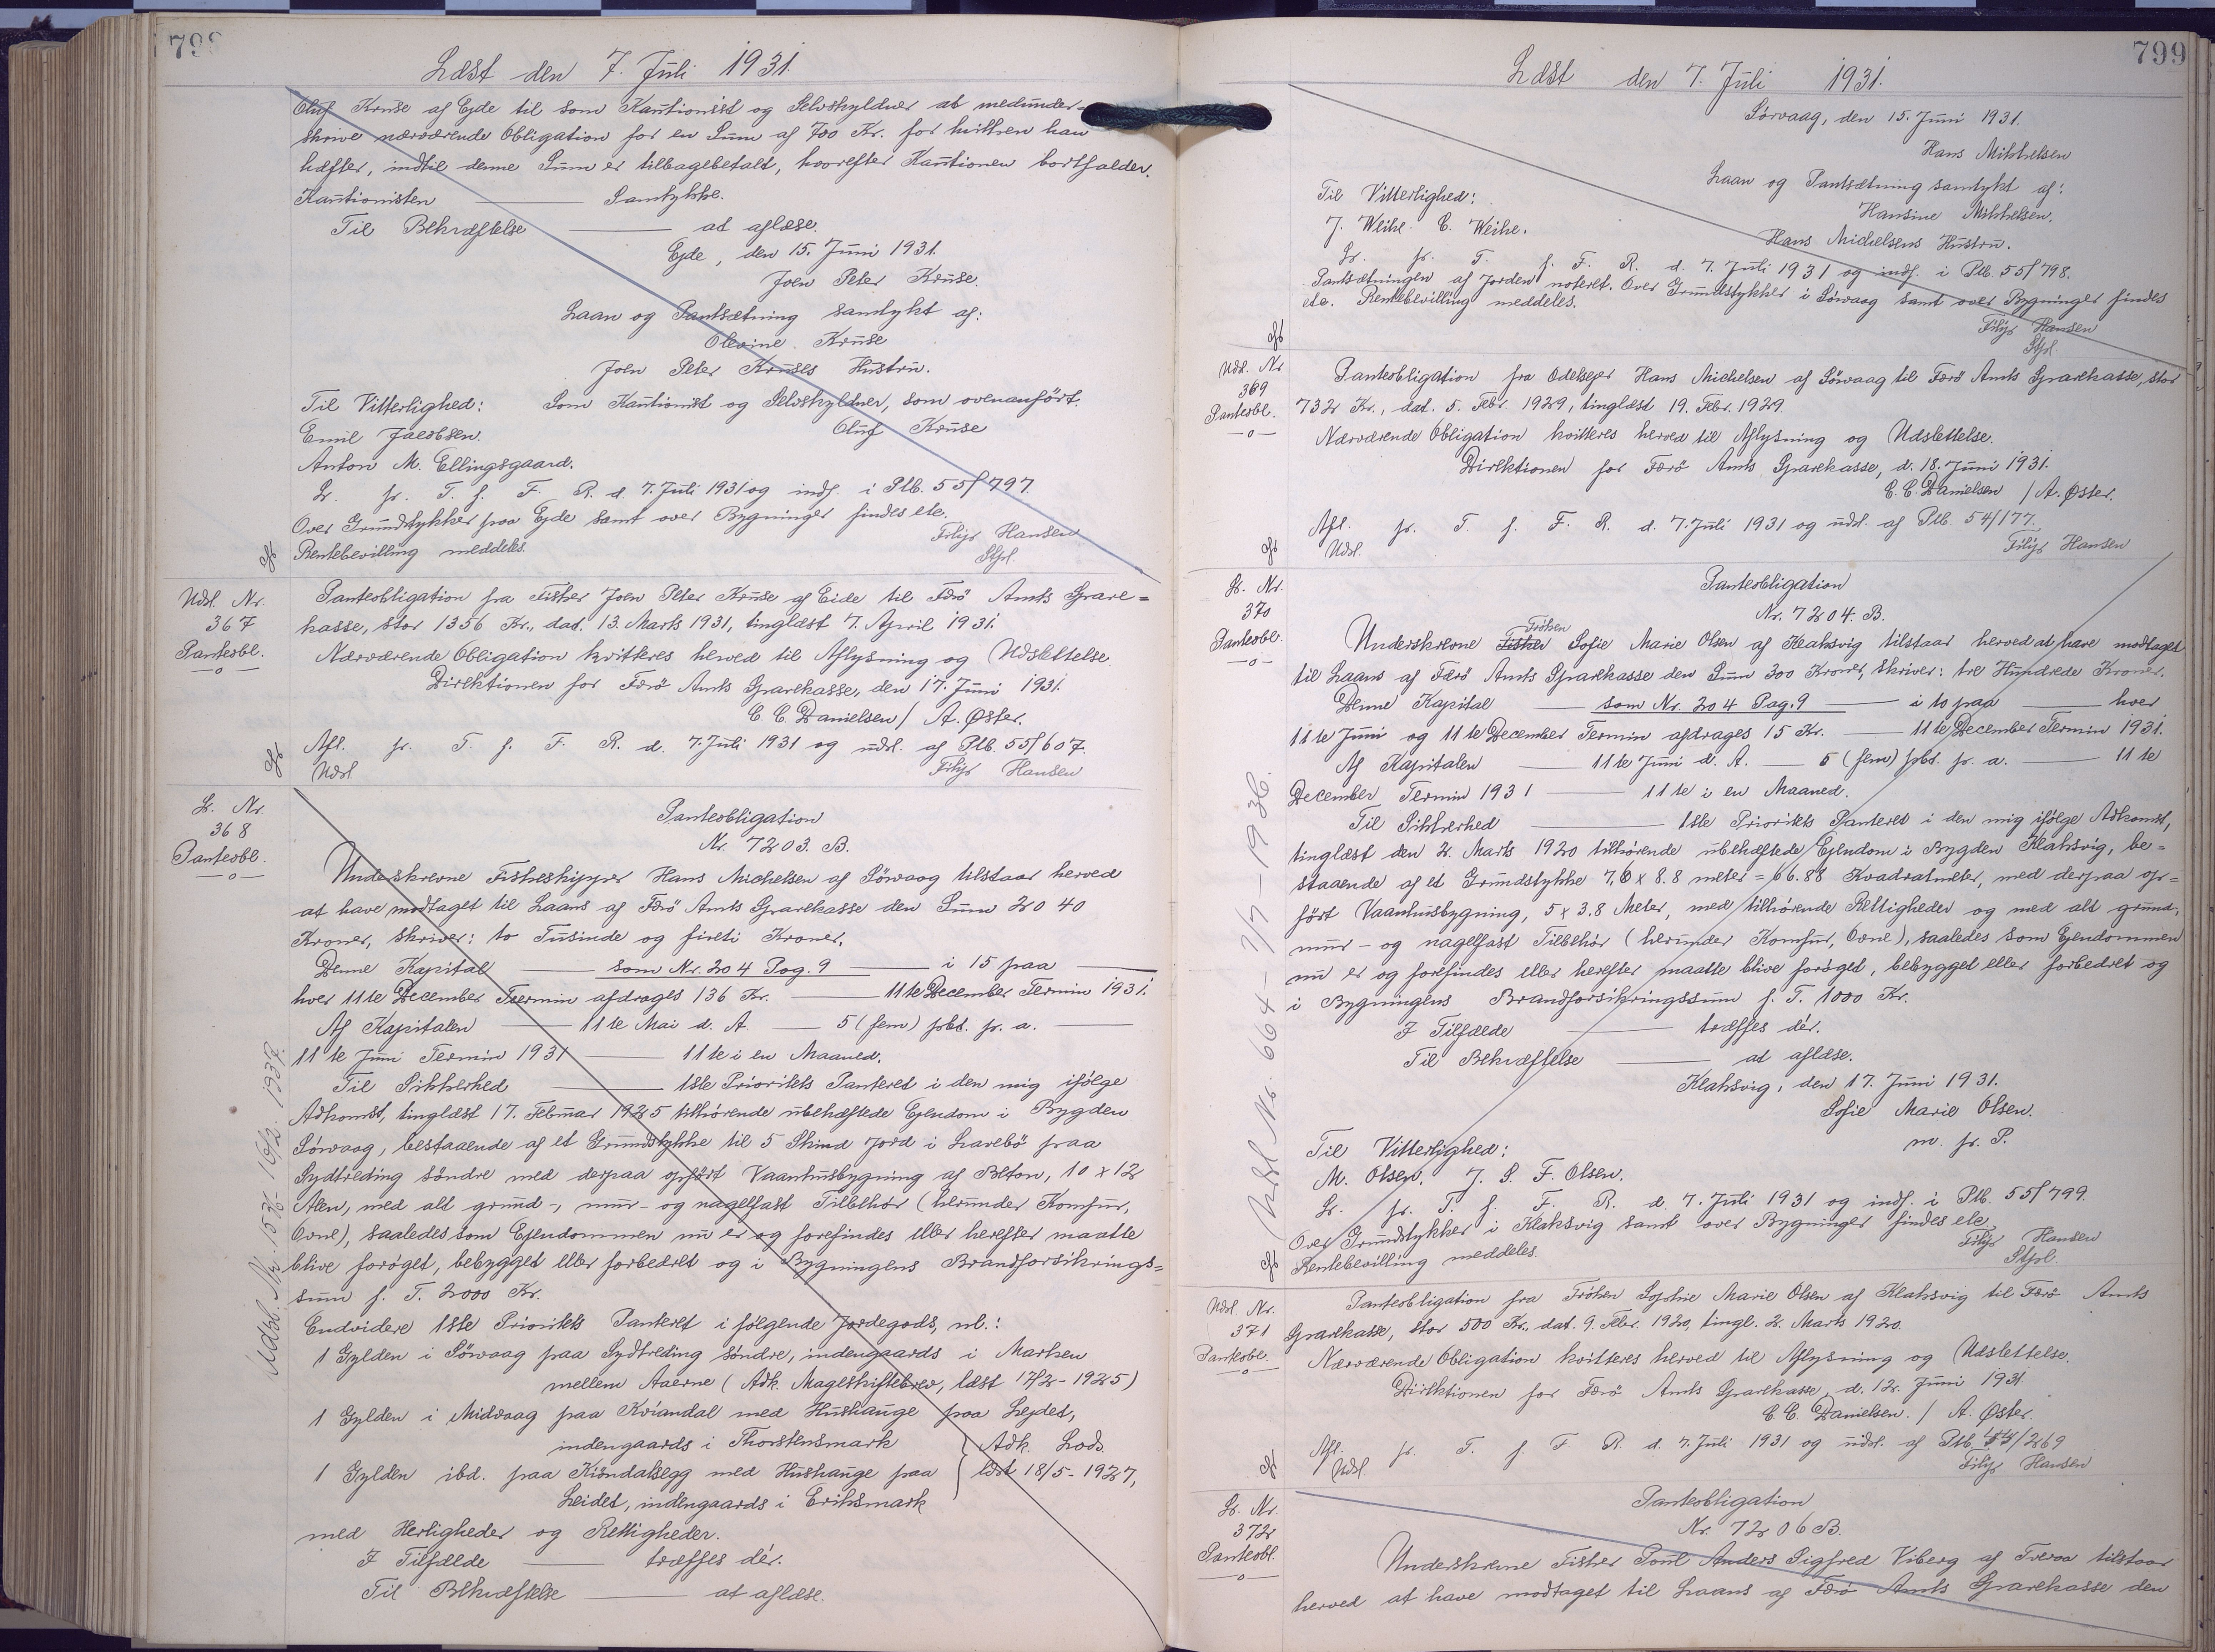 798
Læst den 7. Juli 1931.
Oluf Kruse af Ejde til som Kautionist og Selvskyldner at medunder=
skrive nærværende Obligation for en Sum af 700 Kr. for hvilken han
hæfter, indtil denne Sum er tilbagebetalt, hvorefter Kautionen bortfalder.
Kautionisten — Samtykke.
Til Bekræftelse — at aflæse.
Ejde, den 15. Juni 1931.
Joen Peter Kruse.
Laan og Pantsætning samtykt af:
Olevine Kruse
Joen Peter Kruses Hustru.
Til Vitterlighed: Som Kautionist og Selvskyldner, som ovenanført.
Emil Jacobsen. Oluf Kruse
Anton M. Ellingsgaard.
L. p. T. f. F. R. d. 7. Juli 1931 og indf. i Ptb. 55/797.
Over Grundstykker paa Ejde samt over Bygninger findes etc.
Rentebevilling meddeles. Filip Hansen
Stfpl.
Udsl. Nr.
367
Panteobl.
—o—
Panteobligation fra Fisker Joen Peter Kruse af Eide til Færø Amts Spare=
kasse, stor 1356 Kr., dat. 13. Marts 1931, tinglæst 7. April 1931.
Nærværende Obligation kvitteres herved til Aflysning og Udslettelse.
Direktionen for Færø Amts Sparekasse, den 17. Juni 1931.
C. C. Danielsen / A. Øster.
Afl. p. T. f. F. R. d. 7. Juli 1931 og udsl. af Ptb. 55/607.
Udsl. Filip Hansen
L. Nr.
368
Panteobl.
—o—
Panteobligation
Nr. 7203. B.
Underskrevne Fiskeskipper Hans Michelsen af Sörvaag tilstaar herved
at have modtaget til Laans af Færø Amts Sparekasse den Sum 2040
Kroner, skriver: to Tusinde og fireti Kroner.
Denne Kapital — som Nr. 204 Pag. 9 — i 15 paa —
hver 11te December Termin afdrages 136 Kr. — 11te December Termin 1931.
Af Kapitalen — 11te Mai d. A. — 5 (fem) pct. p. a. —
11te Juni Termin 1931 — 11te i en Maaned.
Til Sikkerhed — 1ste Prioritets Panteret i den mig ifølge
Adkomst, tinglæst 17. Februar 1925 tilhørende ubehæftede Ejendom i Bygden
Sörvaag, bestaaende af et Grundstykke til 5 Skind Jord i Larebö paa
Sydtreding söndre med derpaa opført Vaanhusbygning af Beton, 10 x 12
Alen, med alt grund-, mur- og nagelfast Tilbehør (herunder Komfur,
Ovne), saaledes som Ejendommen nu er og forefindes eller herefter maatte
blive forøget, bebygget eller forbedret og i Bygningens Brandforsikrings=
sum f. T. 2000 Kr.
Endvidere 1ste Prioritets Panteret i følgende Jordegods, nl.:
1 Gylden i Sörvaag paa Sydtreding söndre, indengaards i Marken
mellem Aaerne (Adk. Mageskiftebrev, læst 17/2 - 1925)
1 Gylden i Midvaag paa Kviandal med Hushauge paa Lejdet,
indengaards i Thorstensmark } Adk. Lods.
1 Gylden ibd. paa Kiöndalsegg med Hushauge paa læst 18/5 - 1927,
Leidet, indengaards i Eriksmark
med Herligheder og Rettigheder.
I Tilfælde — træffes dér.
Til Bekræftelse — at aflæse.
Udsl. Nr. 1536 - 16/2. 1937.
799
Læst den 7. Juli 1931.
Sörvaag, den 15. Juni 1931.
Hans Mikkelsen
Laan og Pantsætning samtykt af:
Til Vitterlighed: Hansine Mikkelsen.
J. Weihe. C. Weihe. Hans Michelsens Hustru.
L. p. T. f. F. R. d. 7. Juli 1931 og indf. i Ptb. 55/798.
Pantsætningen af Jorden noteret. Over Grundstykker i Sörvaag samt over Bygninger findes
etc. Rentebevilling meddeles. Filip Hansen
Stfpl.
Udsl. Nr
369
Panteobl.
—o—
Panteobligation fra Odelsejer Hans Michelsen af Sörvaag til Færö Amts Sparekasse, stor
732 Kr., dat. 5. Febr. 1929, tinglæst 19. Febr. 1929.
Nærværende Obligation kvitteres herved til Aflysning og Udslettelse.
Direktionen for Færö Amts Sparekasse, d. 18. Juni 1931.
C. C. Danielsen / A. Øster.
Afl. p. T. f. F. R. d. 7. Juli 1931 og udsl. af Ptb. 54/177.
Udsl. Filip Hansen
L. Nr.
370
Panteobl.
—o—
Panteobligation
Nr. 7204. B.
Frøken
Underskrevne Fisker Sofie Marie Olsen af Klaksvig tilstaar herved at have modtaget
til Laans af Færö Amts Sparekasse den Sum 300 Kroner, skriver: tre Hundrede Kroner.
Denne Kapital — som Nr. 204 Pag. 9 — i to paa — hver
11te Juni og 11te December Termin afdrages 15 Kr. — 11te December Termin 1931.
Af Kapitalen — 11te Juni d. A. — 5 (fem) pct. p. a. — 11te
December Termin 1931 — 11te i en Maaned.
Til Sikkerhed — 1ste Prioritets Panteret i den mig ifølge Adkomst,
tinglæst den 2. Marts 1920 tilhørende ubehæftede Ejendom i Bygden Klaksvig, be=
staaende af et Grundstykke 7,6 x 8.8 meter = 66.88 Kvadratmeter, med derpaa op=
ført Vaanhusbygning, 5 x 3,8 Meter, med tilhørende Rettigheder og med alt grund,
mur- og nagelfast Tilbehör (herunder Komfur, Ovne), saaledes som Ejendommen
nu er og forefindes eller herefter maatte blive forøget, bebygget eller forbedret og
i Bygningens Brandforsikringssum f. T. 1000 Kr.
I Tilfælde — træffes dér.
Til Bekræftelse — at aflæse.
Klaksvig, den 17. Juni 1931.
Sofie Marie Olsen.
Til Vitterlighed: m. p. P.
M. Olsen. J. S. F. Olsen.
L. p. T. f. F. R. d. 7. Juli 1931 og indf. i Ptb. 55/799.
Over Grundstykker i Klaksvig samt over Bygninger findes etc.
Rentebevilling meddeles. Filip Hansen
Stfpl.
Udsl. Nr. 664 - 7/7 - 1936.
Udsl. Nr.
371
Panteobl.
—o—
Panteobligation fra Frøken Sophie Marie Olsen af Klaksvig til Færö Amts
Sparekasse, stor 500 Kr., dat. 9. Febr. 1920, tingl. 2. Marts 1920.
Nærværende Obligation kvitteres herved til Aflysning og Udslettelse.
Direktionen for Færö Amts Sparekasse, d. 12. Juni 1931
C. C. Danielsen. / A. Øster.
Afl. p. T. f. F. R. d. 7. Juli 1931 og udsl. af Ptb. /269
Udsl Filip Hansen
L. Nr.
372
Panteobl.
—o—
Panteobligation
Nr. 7206 B.
Underskrevne Fisker Poul Anders Sigfred Viberg af Tveraa tilstaar
herved at have modtaget til Laans af Færö Amts Sparekasse den